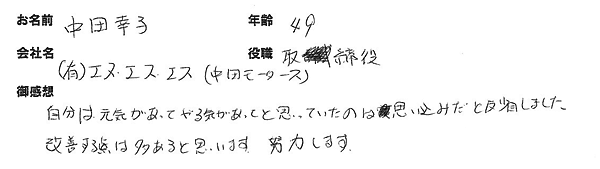 お名前 中田幸子 年齢 49
会社名 (有)エヌ・エス・エス (中田モータース) 役職 取締役
御感想
自分は元気があってやる気があると思っていたのは思い込みだと反省しました。
改善する点は多々あると思います。努力します。